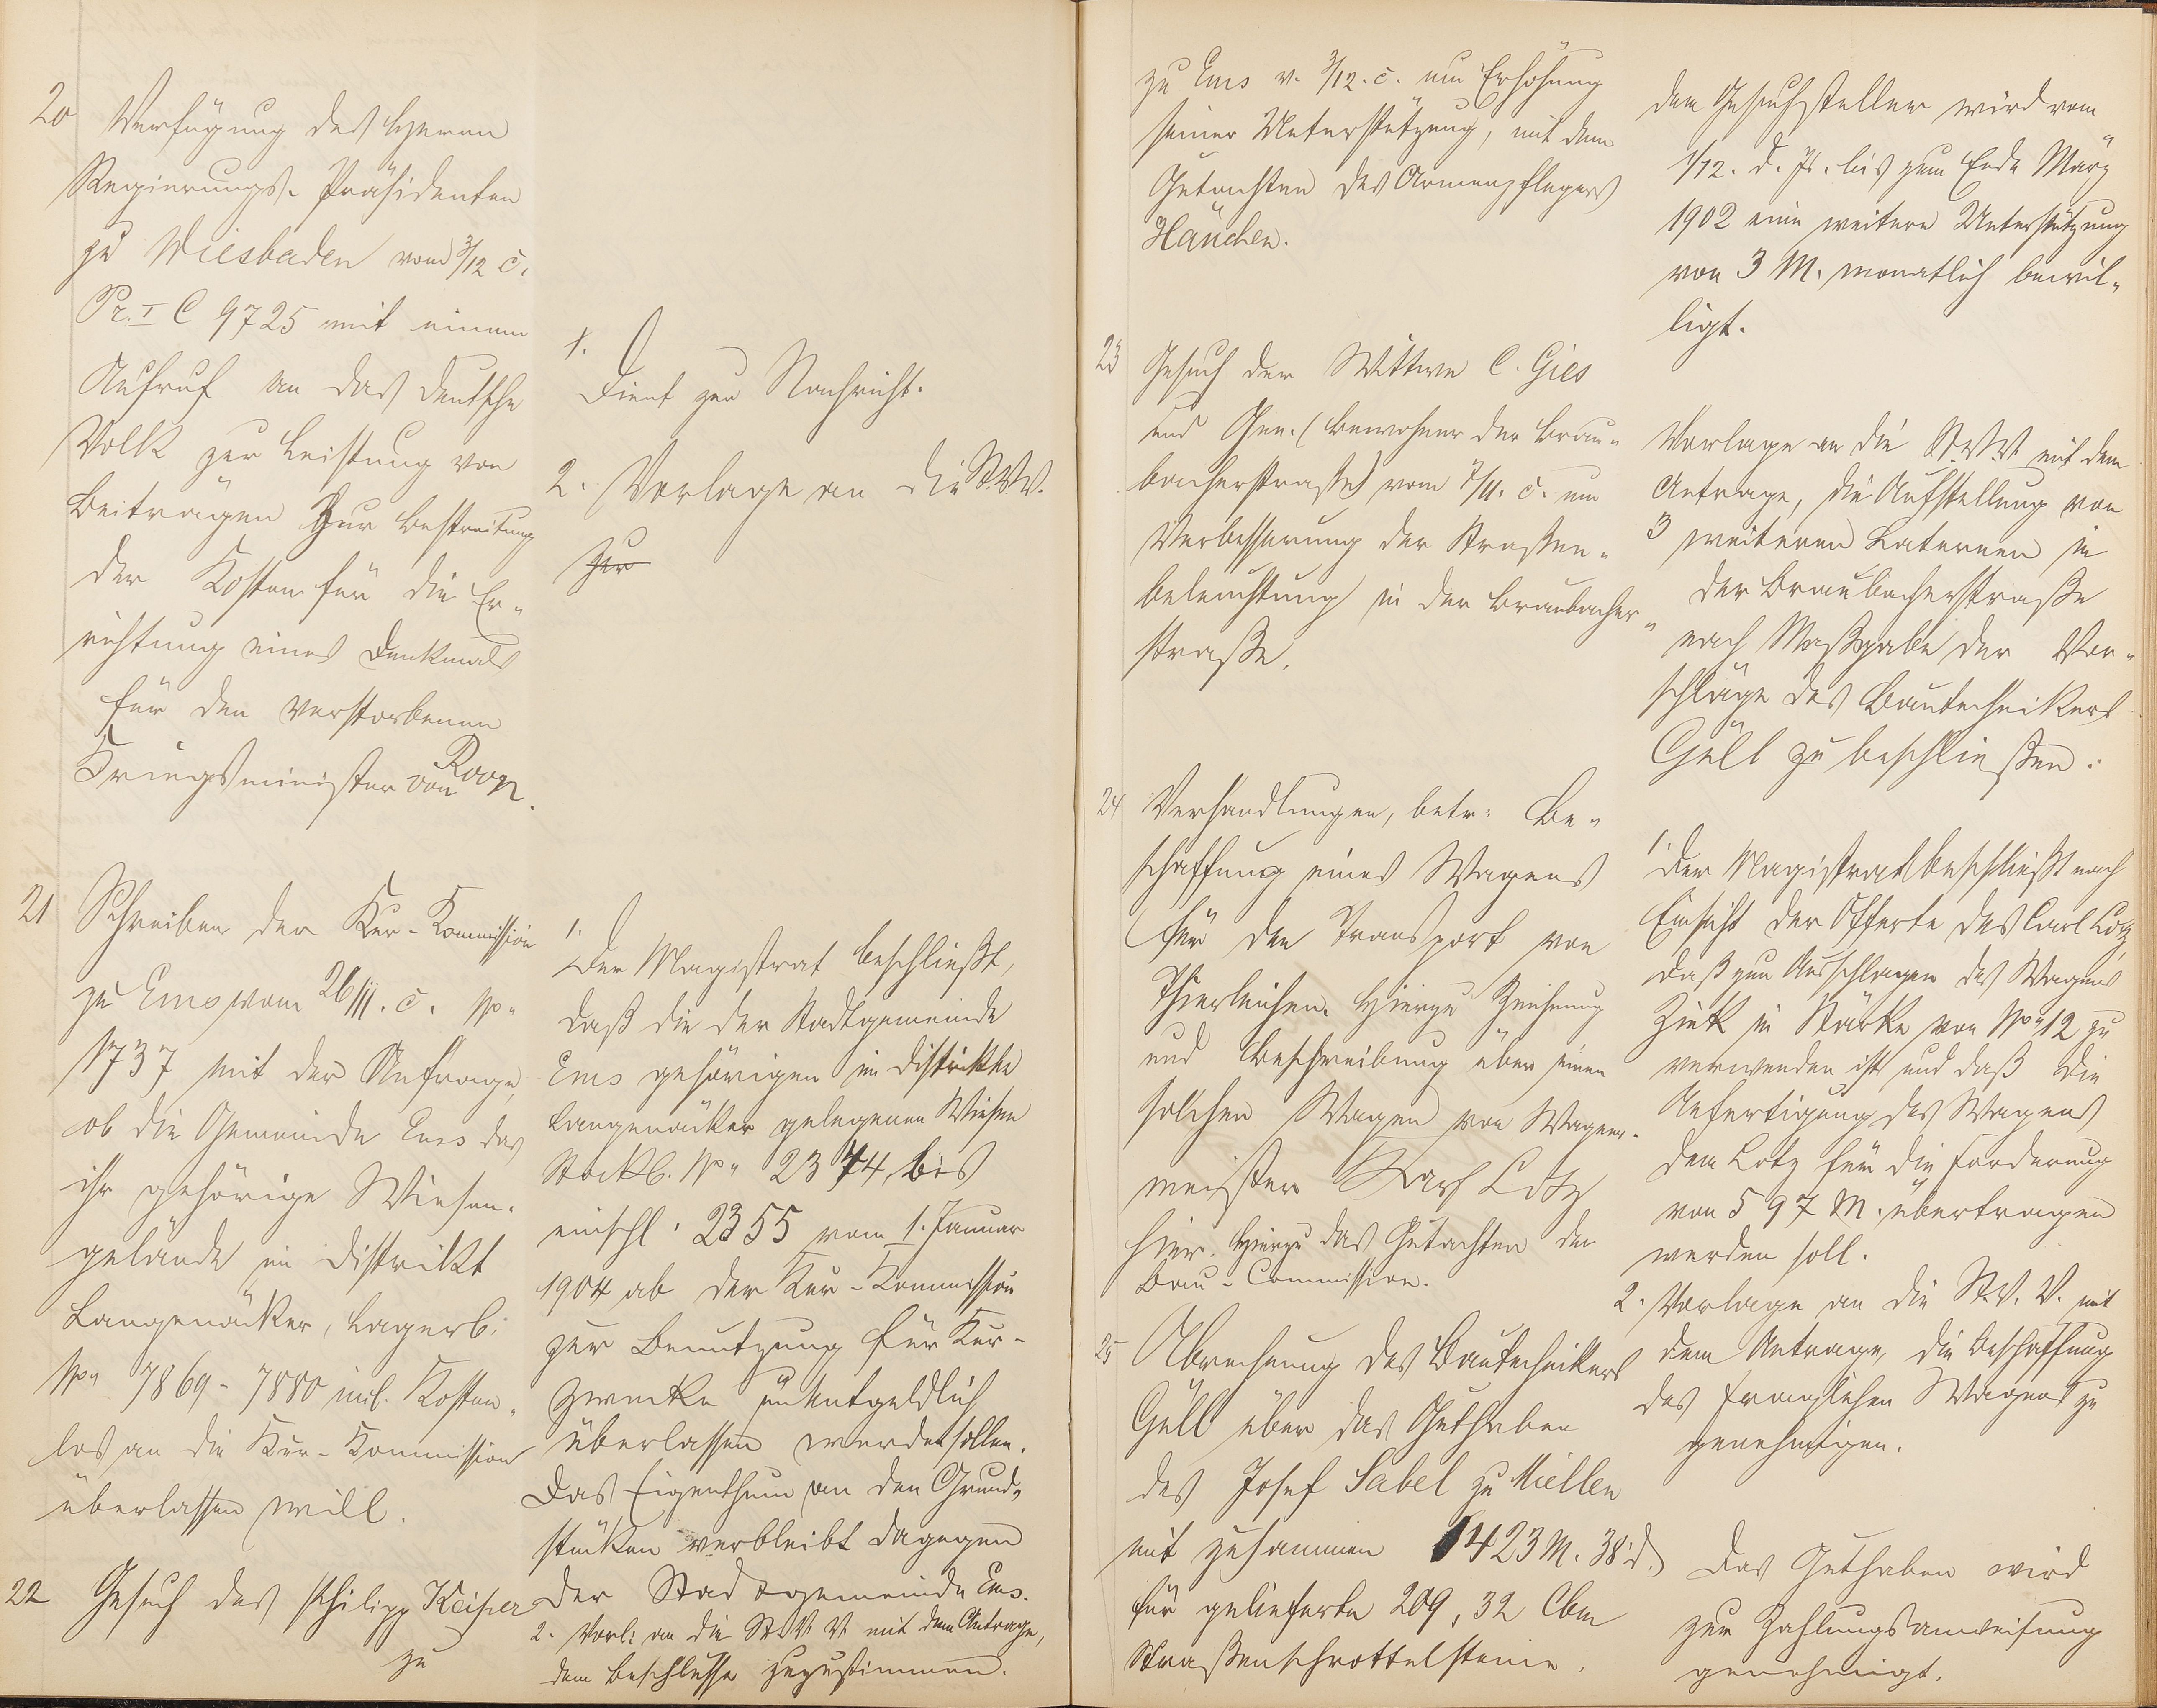 20 Verfügung des Herrn
Regierungs-Präsidenten
zu Wiesbaden vom 3/12 c.
Pr. I C 9725 mit einem
Aufruf an das deutsche
Volk zur Leistung von
Beiträgen zur Bestreitung
der Kosten für die Er-
richtung eines Denkmals
für den verstorbenen
Kriegsminister von Roon.
1.
Dient zur Nachricht.
2. Vorlage an die St.V.V.
zur
21 Schreiben der Kur-Kommission
zu Ems vom 26/11. c. No
1737 mit der Anfrage,
ob die Gemeinde Ems das
ihr gehörige Wiesen-
gelände im Distrikt
Langenäcker, Lagerb.
No 7869-7880 incl. kosten-
los an die Kur-Kommission
überlassen will.
1.
Der Magistrat beschließt,
daß die der Stadtgemeinde
Ems gehörigen im Distrikte
Langenäcker gelegenen Wiesen
Stockb. No 2344 bis
einschl. 2355 vom 1. Januar
1904 ab der Kur-Kommission
zur Benutzung für Kur-
zwecke unentgeldlich
überlassen werden sollen.
Das Eigenthum an den Grund-
stücken verbleibt dagegen
der Stadtgemeinde Ems.
2. Vorl. an die St.V.V. mit dem Antrage,
dem Beschlusse zuzustimmen.
22 Gesuch des Philipp Keiper
zu
zu Ems v. 3/12. c. um Erhöhung
seiner Unterstützung, mit dem
Gutachten des Armenpflegers
Hänchen.
Dem Gesuchsteller wird vom
1/12. d. Js. bis zum Ende März
1902 eine weitere Unterstützung
von 3 M. monatlich bewil-
ligt.
23 Gesuch der Wittwe C. Gies
und Gen. (Bewohner der Brau-
bacherstraße) vom 7/11. c. um
Verbesserung der Straßen-
beleuchtung in der Braubacher-
straße.
Vorlage an die St.V.V. mit dem
Antrage, die Aufstellung von
3 weiteren Laternen in
der Braubacherstraße
nach Maßgabe der Vor-
schläge des Bautechnikers
Güll zu beschließen.
24 Verhandlungen, betr. Be-
schaffung eines Wagens
für den Transport von
Thierleichen. Hierzu Zeichnung
und Beschreibung über einen
solchen Wagen von Wagner-
meister Karl Lotz
hier. Hierzu das Gutachten der
Bau-Commission.
1.
Der Magistrat beschließt nach
Einsicht der Offerte des Carl Lotz,
daß zum Ausschlagen des Wagens
Zink in Stärke von No 12 zu
verwenden ist und daß die
Anfertigung des Wagens
dem Lotz für die Forderung
von 597 M. übertragen
werden soll.
2. Vorlage an die St.V.V. mit
dem Antrage, die Beschaffung
des fraglichen Wagens zu
genehmigen.
25 Abrechnung des Bautechnikers
Güll über das Guthaben
des Josef Sabel zu Miellen
mit zusammen 1423 M. 38 d.
für gelieferte 209,32 Cbm
Straßenschrottelsteine.
Das Guthaben wird
zur Zahlungsanweisung
genehmigt.